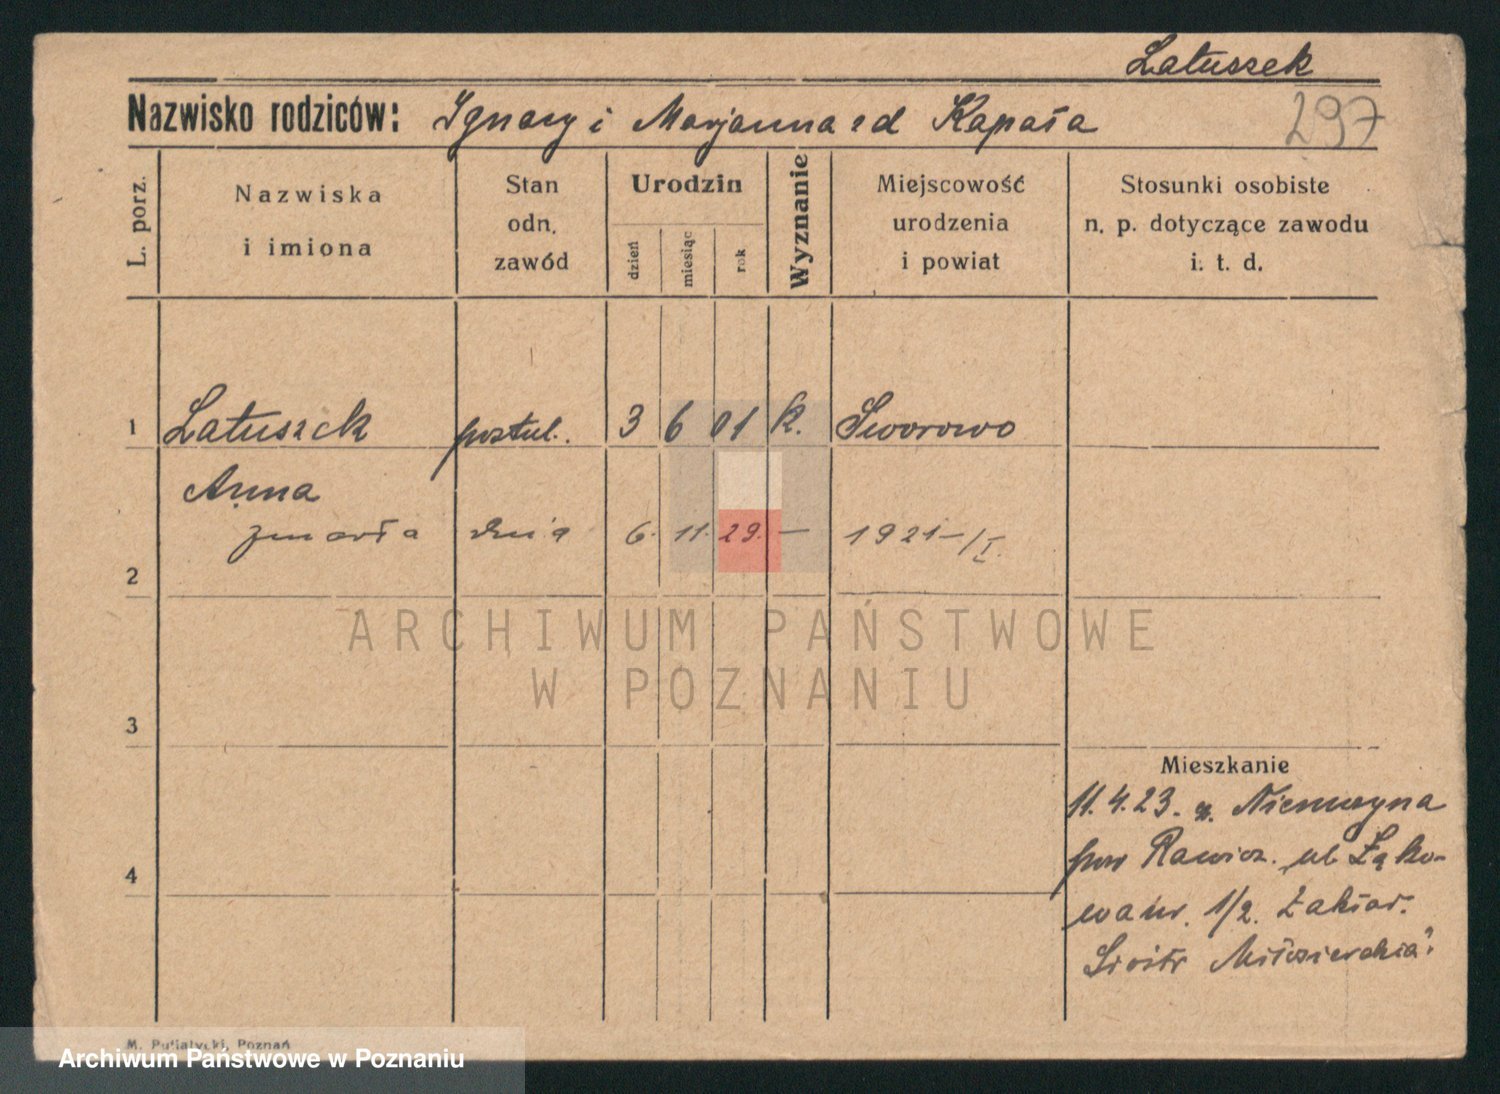 Latuszek
Nazwisko rodziców: Ignacy i Marjanna zd Kapała
297
L. porz.
Nazwiska
i imiona
Stan
odn.
zawód
Urodzin
dzień
miesiąc
rok
Wyznanie
Miejscowość
urodzenia
i powiat
Stosunki osobiste
n. p. dotyczące zawodu
i. t. d.
1 Latuszek postul. 3 6 01 k. Sworowo
Anna
zmarła dnia 6. 11. 29. – 1921 –/I.
2
ARCHIWUM PAŃSTWOWE
W POZNANIU
3
Mieszkanie
11.4.23. z. Niemarzyna
pow Rawicz. ul Łąko-
wa nr. 1/2. Zakład.
Siostr Miłosierdzia"
4
M. Putiatycki, Poznań
Archiwum Państwowe w Poznaniu